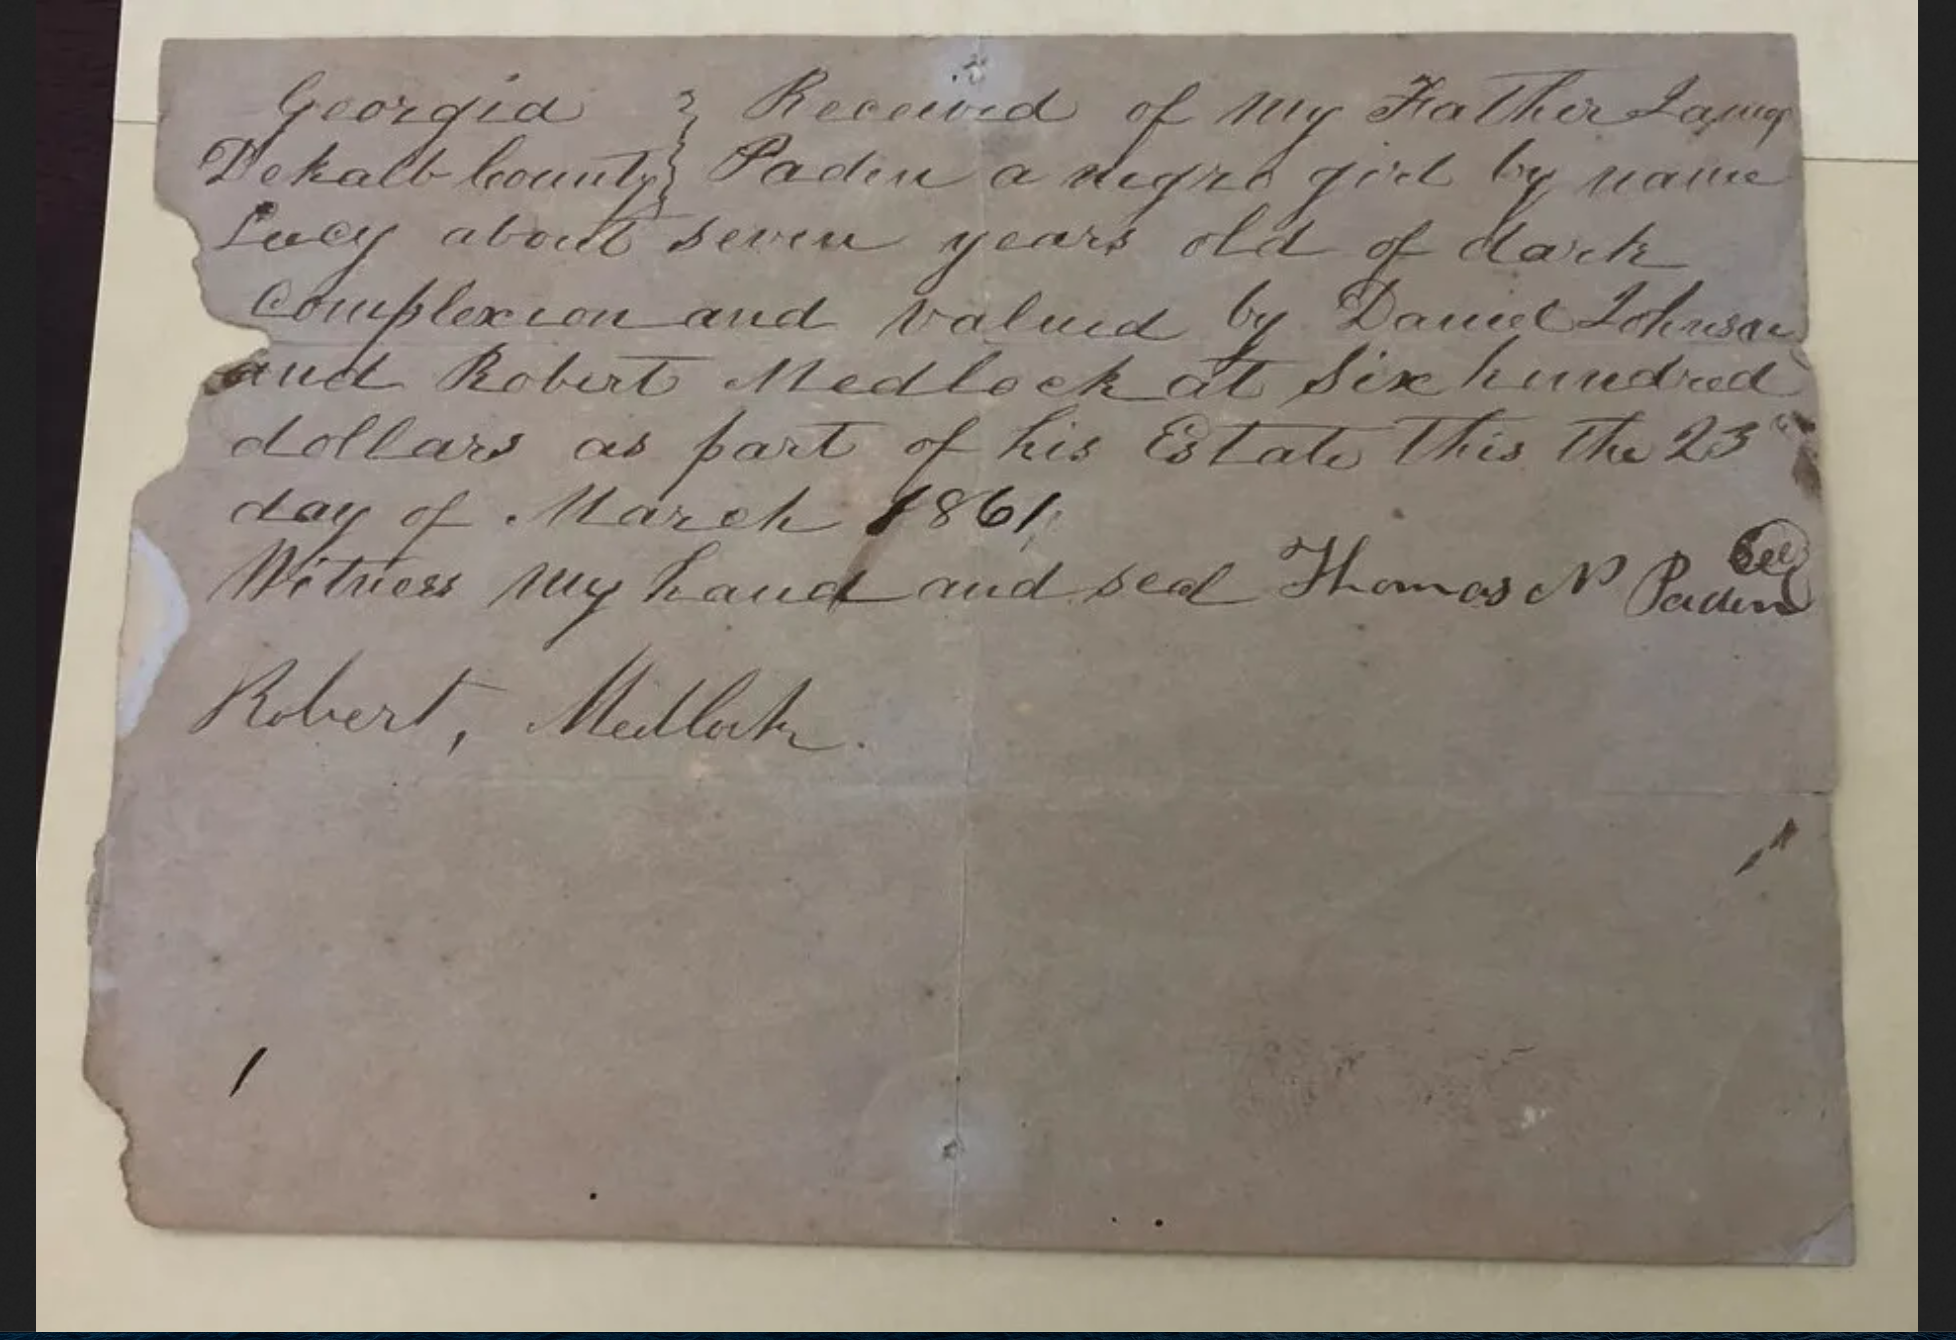 Georgia } Received of my Father James
Dekalb County } Paden a negro girl by name
Lucy about seven years old of dark
Complexion and valued by Daniel Johnson
and Robert Medlock at Six hundred
dollars as part of his Estate this the 23
day of March 1861
Witness my hand and seal Thomas N Paden
Robert, Medlock.